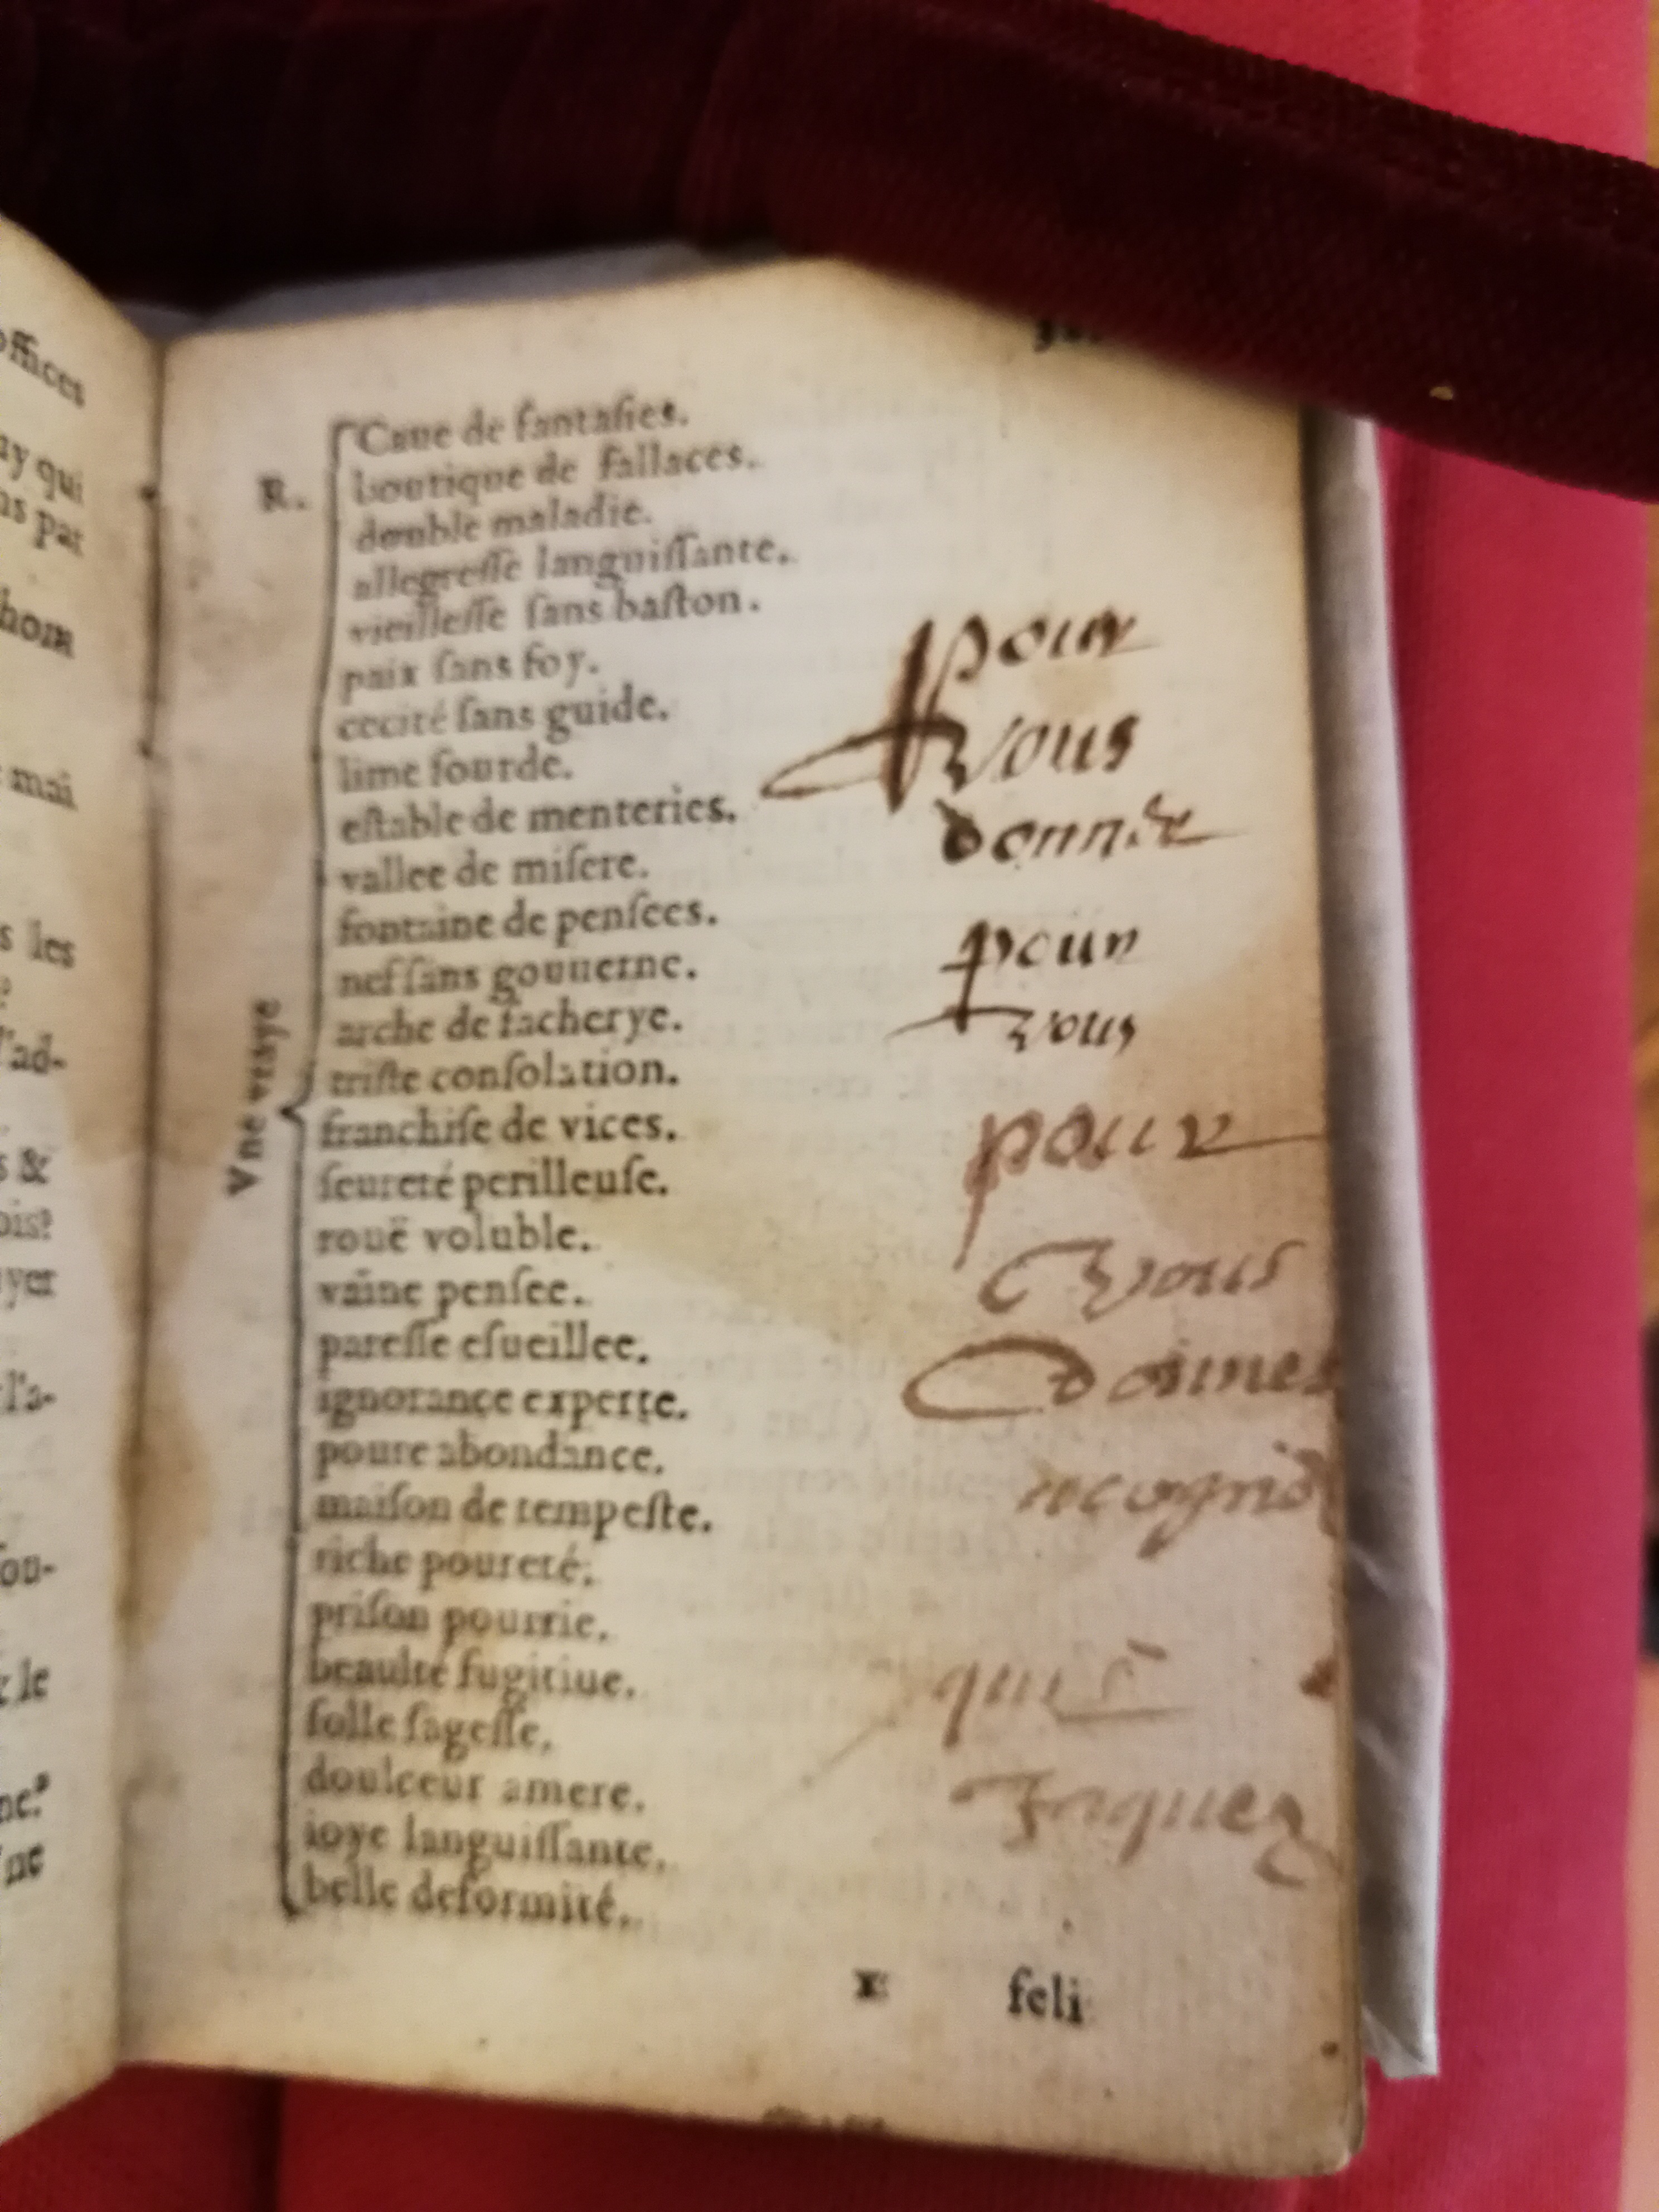 offices
ay qui
ns par
hom
mai
s les
l'ad-
s &
ois?
yer
l'a-
ou-
le
ne?
ne
R.
Vne vraye
Caue de fantaſies.
boutique de fallaces.
double maladie.
allegreſſe languiſſante.
vieilleſſe ſans baſton.
paix ſans foy.
cecité ſans guide.
lime ſourde.
eſtable de menteries.
vallee de miſere.
fontaine de penſees.
nef ſans gouuerne.
arche de facherye.
triſte conſolation.
franchiſe de vices.
ſeureté perilleuſe.
rouë voluble.
vaine penſee.
pareſſe eſueillee.
ignorance experte.
poure abondance.
maiſon de tempeſte.
riche poureté.
priſon pourrie.
beaulté fugitiue.
folle ſageſſe.
doulceur amere.
ioye languiſſante.
belle deformité.
pour
vous
donner
pour
vous
pour
vous
donner
Jaquez
E feli